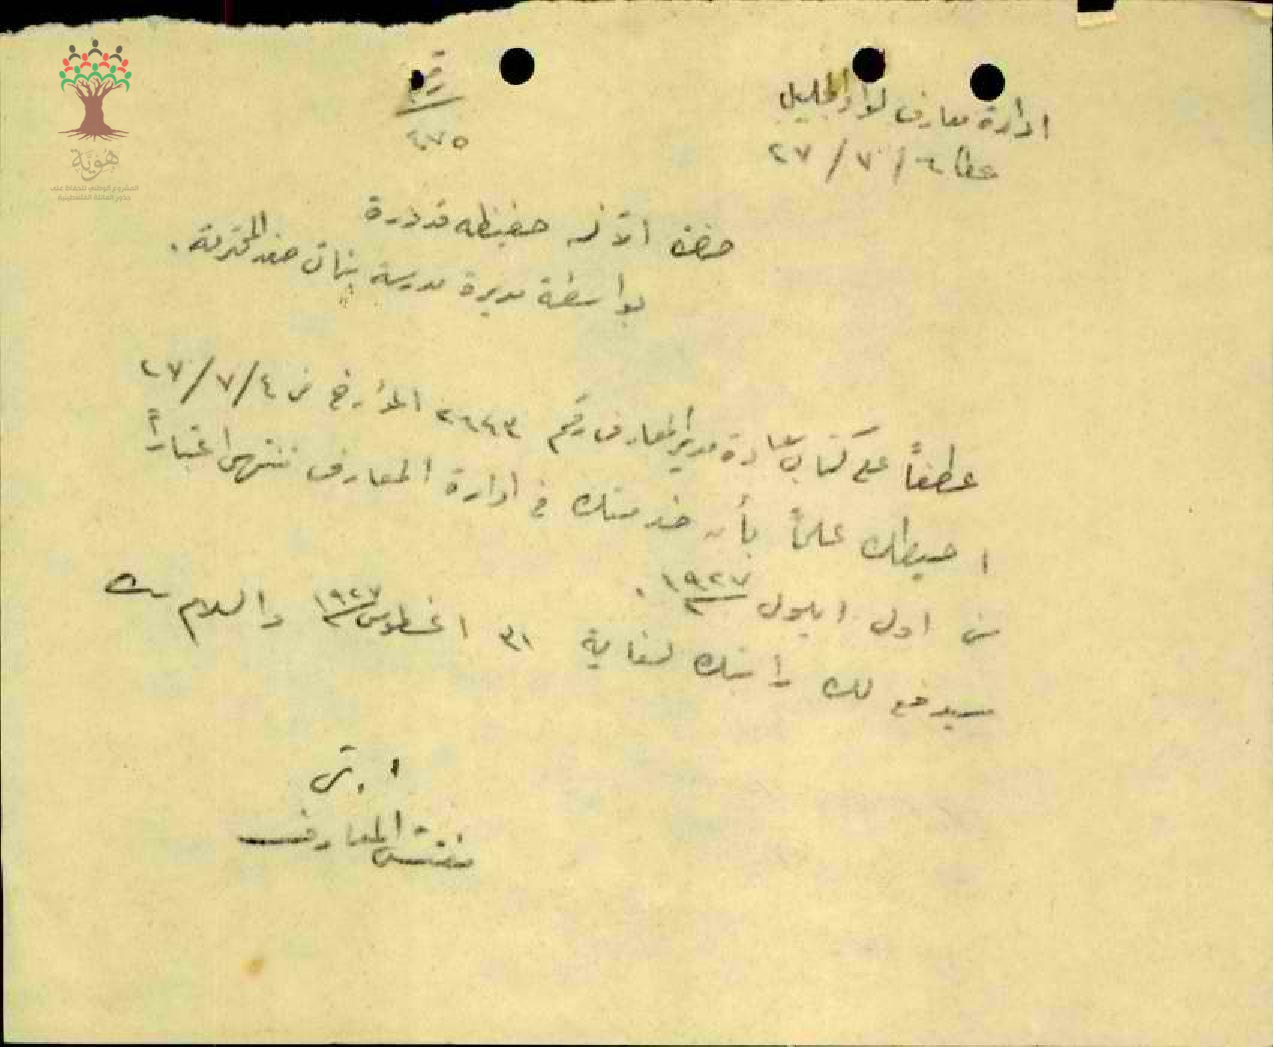 ادارة معارف لواء الجليل
عكا ٦ / ٧ / ٢٧
رقم
٤٧٥
هَوِيَّة
المشروع الوطني للحفاظ على
جذور العائلة الفلسطينية
حضرة الآنسه حفيظه قدورة
بواسطة مديرة مدرسة بنات صفد المحترمة .
عطفاً على كتاب سعادة مدير المعارف رقم المؤرخ في ٤ / ٧ / ٢٧
احيطك علماً بأن خدمتك في ادارة المعارف تنتهى اعتباراً
من اول ايلول ١٩٢٧ .
سيدفع لك راتبك لغاية ٣١ اغسطوس ١٩٢٧ والسلام عليك
مفتش المعارف